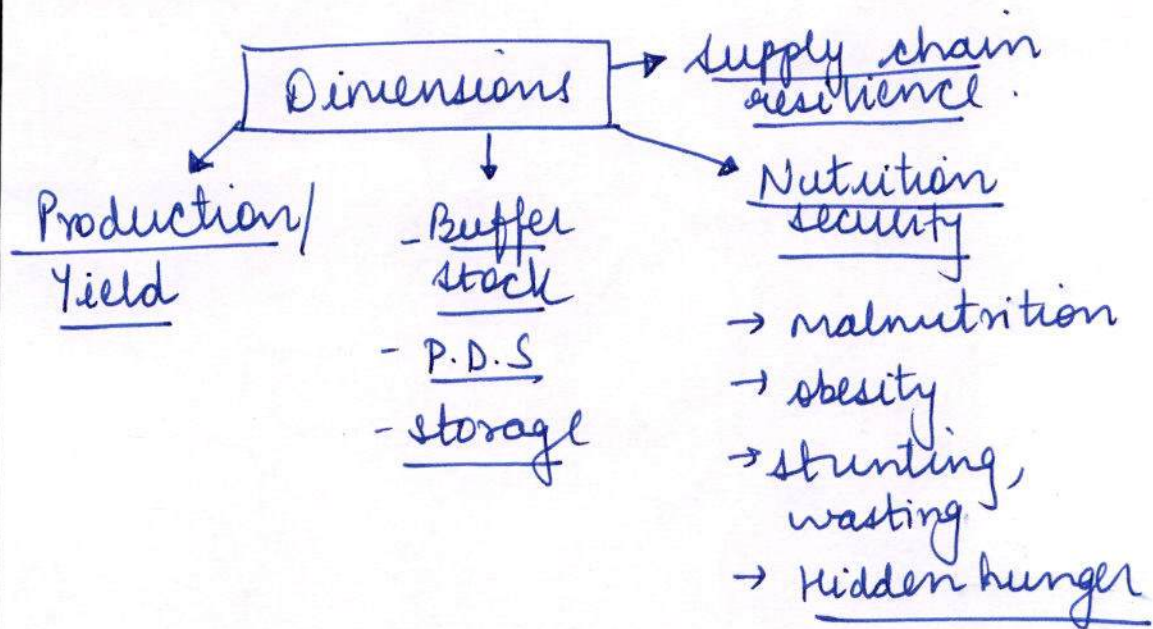 Dimensions
supply chain
resilience.
Production/
Yield
- Buffer
stock
- P.D.S
- storage
Nutrition
security
→ malnutrition
→ obesity
→ stunting,
wasting
→ Hidden hunger